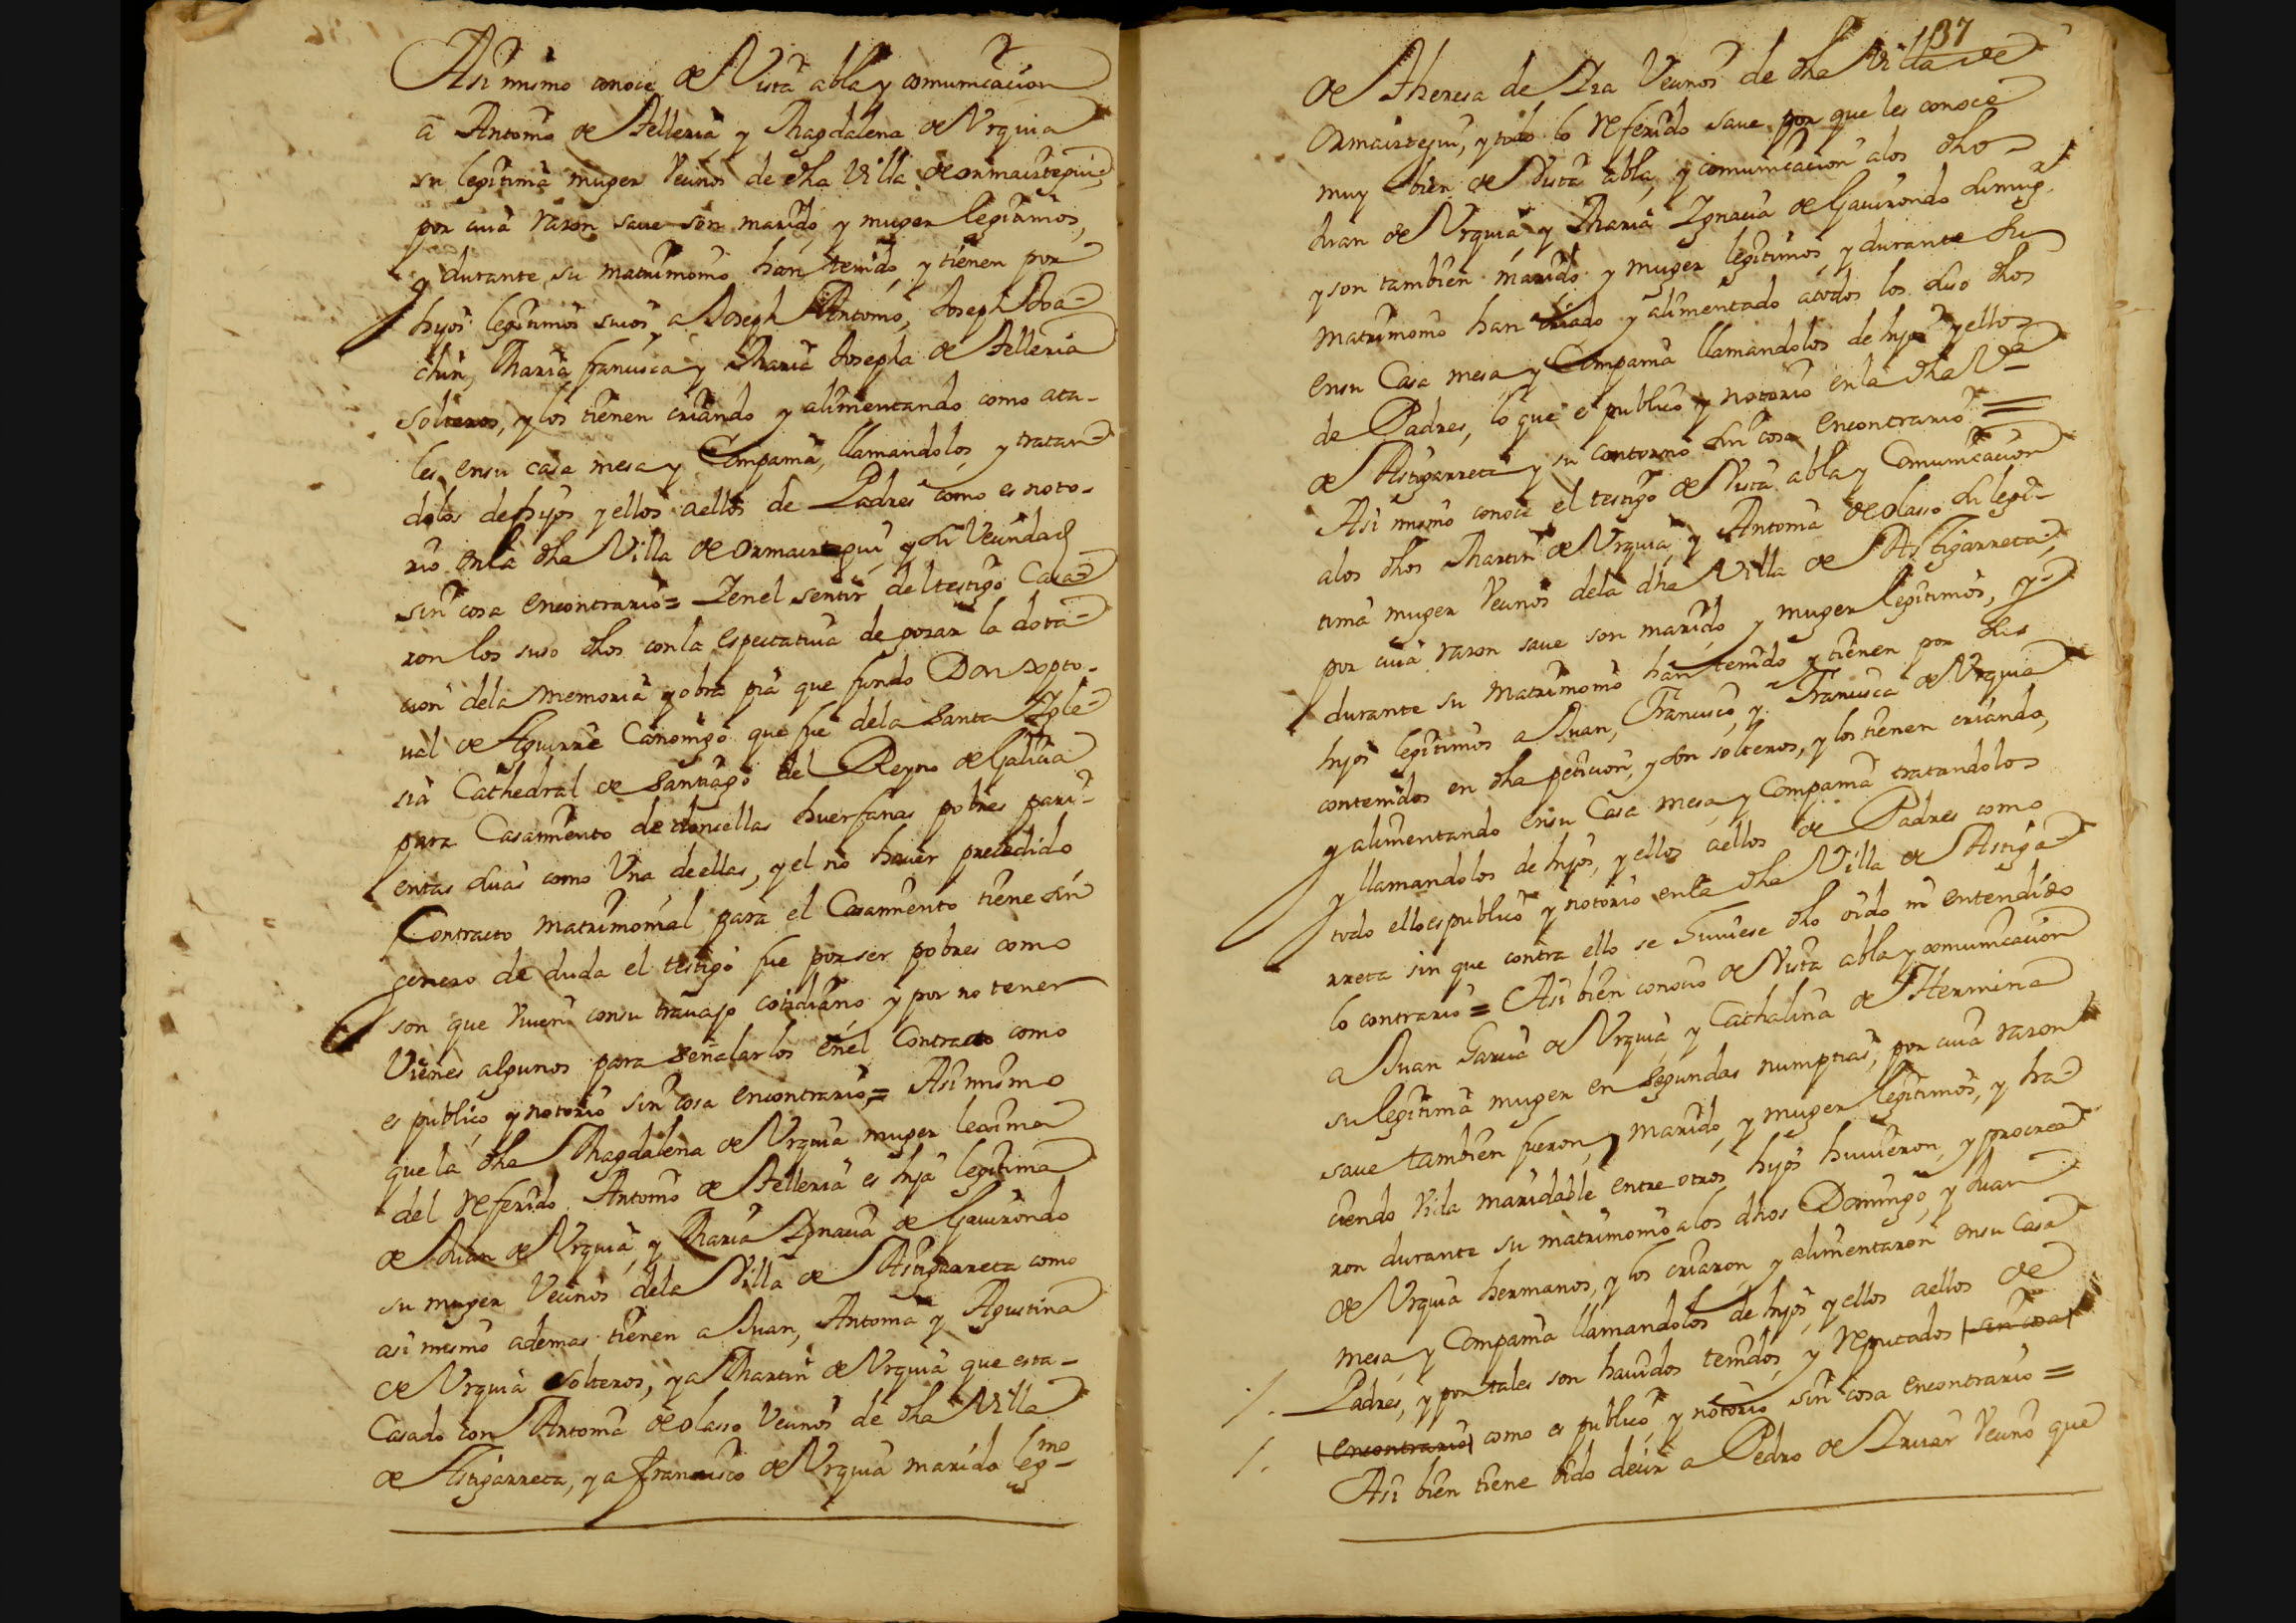 Asi mismo conoce de Vista abla y comunicacion
a Antonio de Telleria y Magdalena de Vrquia
su legitima muger Vecinos de dha Villa de ormaiztegui,
por cuia razon saue son marido, y muger legitimos,
y durante, su matrimonio han tenido, y tienen por
hijos legitimos suios a Joseph Antonio, Joseph Joa-
chin, Maria francisca y Maria Josepha de Telleria
solteros, y los tienen criando y alimentando como ata-
les ensu casa mesa y Compania, llamandolos y tratan-
dolos de hijos y ellos aellos de Padres como es noto-
rio enla dha Villa de ormaiztegui, y su Vecindad
sin cosa encontrario = Y en el sentir del testigo Casa-
ron los suso dhos con la espectatiua de gozar la dota-
cion dela memoria y obra pia que fundo Don sopto-
ual de Aguirre Canonigo que fue dela Santa Igle-
sia Cathedral de Santiago del Reyno de Galicia
para Casamiento de donsellas huerfanas pobres pari-
entas suias como Vna de ellas, y el no hauer precedido
Contracto matrimonial para el Casamiento tiene sin
genero de duda el testigo fue por ser pobres como
son que viuen consu trauajo cotidiano y por no tener
Vienes algunos para señalarlos enel Contracto como
es publico, y notorio sin cosa encontrario = Asi mismo
que la dha Magdalena de Vrquia muger lexima
del referido Antonio de Telleria es hija legitima
de Juan de Vrquia, y Maria Ignacia de Gauirondo
su muger Vecinos dela Villa de Astigarreta como
asi mesmo ademas tienen a Juan, Antonia y Agustina
de Vrquia solteros, y a Martin de Vrquia que esta-
Casado con Antonia de olasso Vecinos de dha Villa
de Astigarreta, y a francisco de Vrquia marido legmo
137
de Theresa de Yza Vecinos de dha Villa de
ormaiztegui, y todo lo referido saue por que les conoce
muy bien de Vista abla, y comunicacion alos dhos
Juan de Vrquia y Maria Ignacia de Gauirondo su mugr
y son tambien marido y muger legitimos y durante su
matrimonio han criado y alimentado atodos los suso dhos
ensu Casa mesa y Compania llamandolos de hijos y ellos
de Padres, lo que es publico y notorio en la dha Va
de Astigarreta y su contorno sin cosa encontrario =
Asi mismo conoce el testigo de Vista abla y Comunicacion
alos dhos Martin de Vrquia, y Antonia de olasso su legi-
tima muger Vecinos dela dha Villa de Astigarreta,
por cuia razon saue son marido y muger legitimos, y
durante su matrimonio han tenido y tienen por sus
hijos legitimos a Juan, Francisco, y Francisca de Vrquia
contenidos en dha peticion, y son solteros, y los tienen criando,
y alimentando ensu Casa mesa, y Compania tratandolos
y llamandolos de hijos, y ellos aellos de Padres como
todo ello es publico y notorio enla dha Villa de Astiga-
rreta sin que contra ello se huuiese dho oido ni entendido
lo contrario = Asi bien conocio de Vista abla y comunicacion
a Juan Garcia de Vrquia y Cathalina de Hermina
su legitima muger en segundas numpcias, por cuia razon
saue tambien fueron, marido, y muger legitimos, y ha-
ciendo Vida maridable entre otros hijos huuieron, y procrea-
ron durante su matrimonio alos dhos Domingo, y Juan
de Vrquia hermanos, y los criaron, y alimentaron ensu Casa
mesa, y Compania llamandolos de hijos, y ellos aellos de
Padres, y por tales son hauidos tenidos, y reputados sin cosa
encontrario como es publico, y notorio sin cosa encontrario =
Asi bien tiene oido decir a Pedro de Vecino que